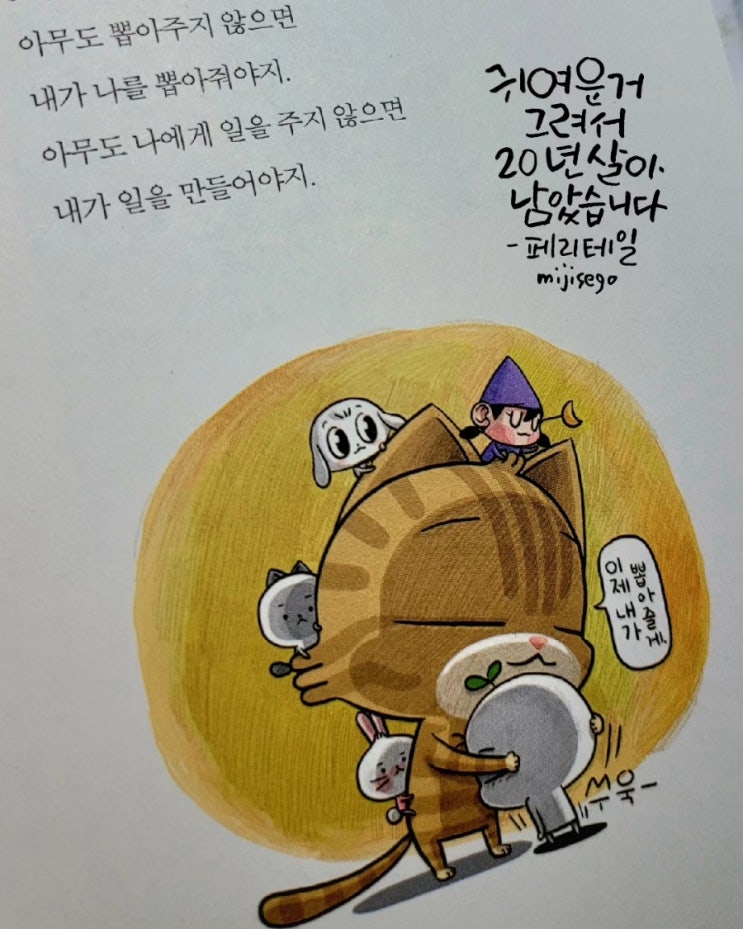 아무도 뽑아주지 않으면
내가 나를 뽑아줘야지.
아무도 나에게 일을 주지 않으면
내가 일을 만들어야지.
귀여운거
그려서
20년 살아.
남았습니다
-페리테일
mijisego
이제 내가
뽑아줄게.
쑤욱-